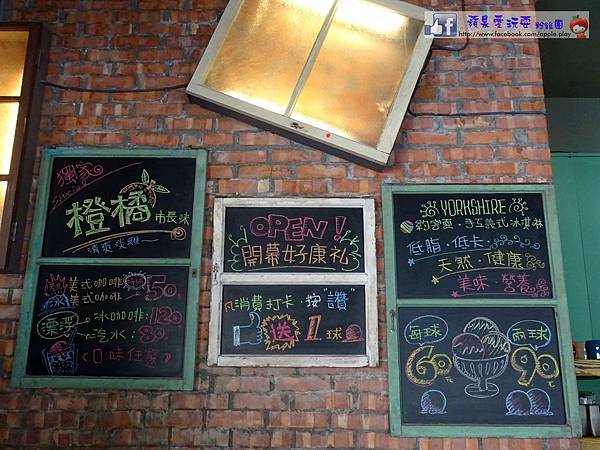 蘋果愛玩耍 粉絲團
http://www.facebook.com/apple.play
獨家
Special
橙橘
市長味
清爽淡雅
美式咖啡
50元
冰
美式咖啡
漂浮
冰咖啡:120
汽水:80
《口味任意》
OPEN!
開幕好康禮
凡消費打卡·按"讚"
送1球
YORKSHIRE
約客夏·手工義式冰淇淋
低脂·低卡
天然·健康
美味·營養
每球
60元
兩球
90元